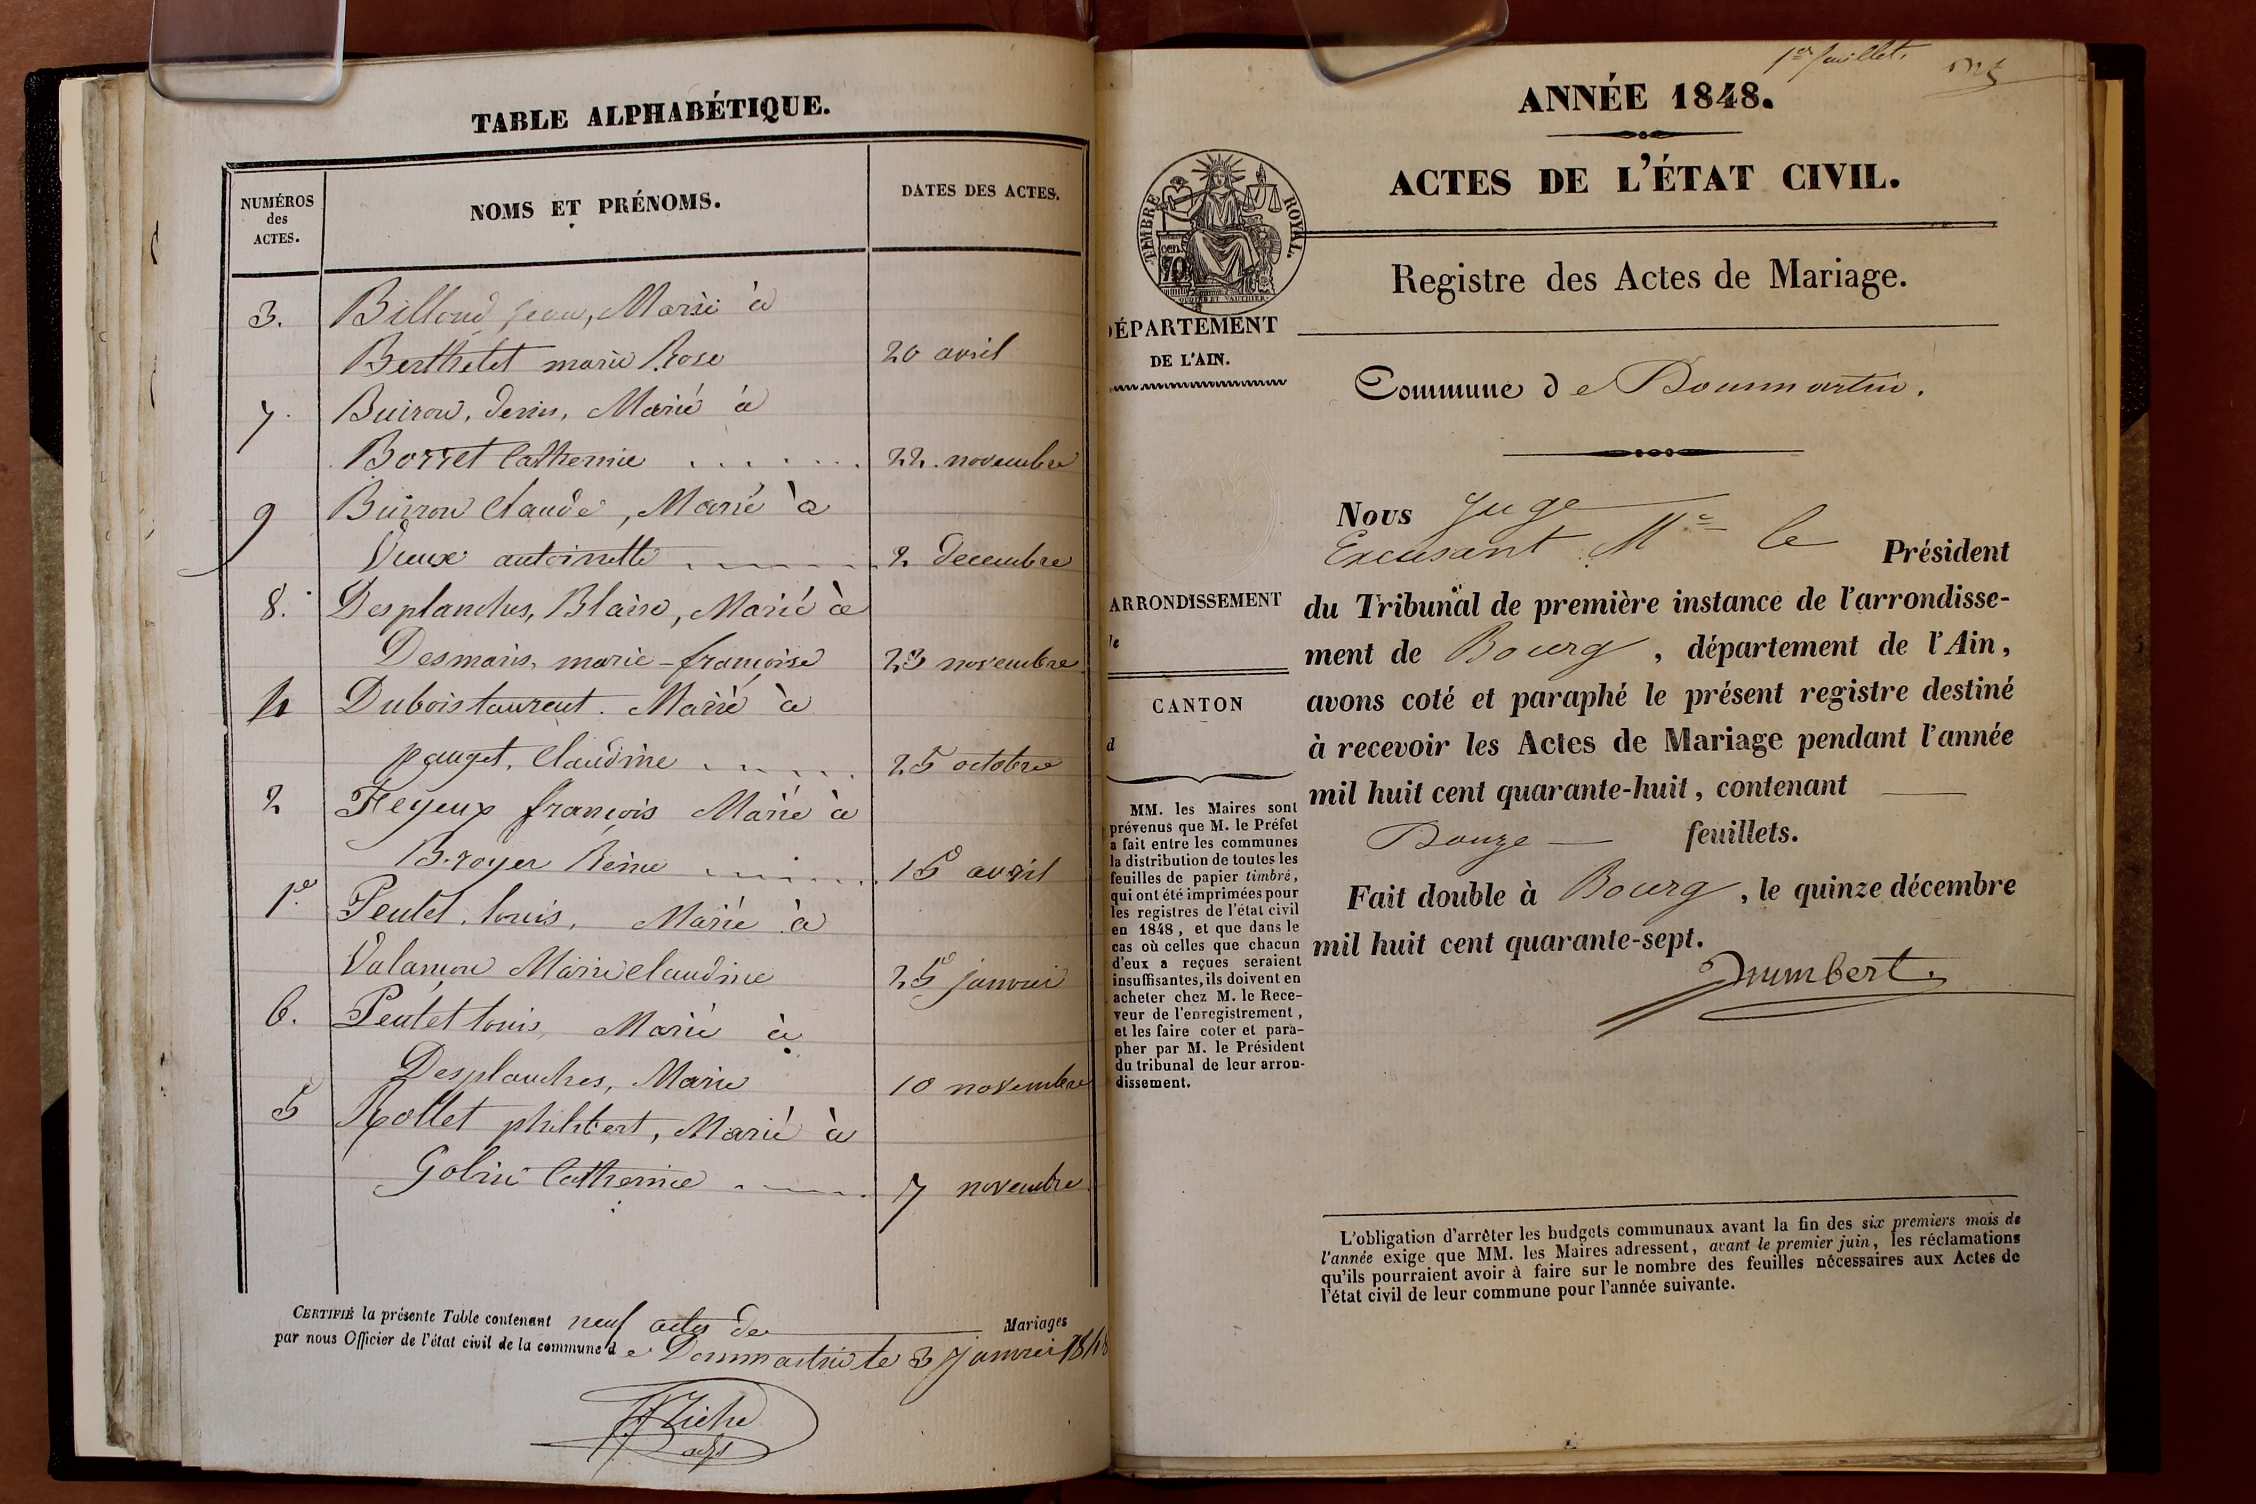 TABLE ALPHABÉTIQUE.
NUMÉROS
des
ACTES.
NOMS ET PRÉNOMS.
DATES DES ACTES.
3. Billoud Jean, Marié à
Berthelet marie Rose 20 avril
7. Buiron, denis, Marié à
Borret Catherine 22 novembre
9 Buiron Claude, Marié à
Vieux antoinette 2 decembre
8. Desplanches, Blaise, Marié à
Desmaris, marie-françoise 23 novembre
4 Dubois laurent. Marié à
pauget, Claudine 25 octobre
2 Feyeux françois Marié à
Broyer Reine 15 avril
1er Peulet, louis, Marié à
Valançon Marie claudine 25 janvier
6. Peulet louis, Marié à
Desplanches, Marie 10 novembre
5 Rollet philibert, Marié à
Gobin Catherine 7 novembre
CERTIFIÉ la présente Table contenant neuf actes de Mariages
par nous Officier de l'état civil de la commune de Dommartin le 3 Janvier 1848
1er feuillet.
ANNÉE 1848.
ACTES DE L'ÉTAT CIVIL.
TIMBRE ROYAL.
70
Registre des Actes de Mariage.
DÉPARTEMENT
DE L'AIN.
Commune de Dommartin.
Nous Juge
Excusant Mr le Président
du Tribunal de première instance de l'arrondisse-
ment de Bourg, département de l'Ain,
avons coté et paraphé le présent registre destiné
à recevoir les Actes de Mariage pendant l'année
mil huit cent quarante-huit, contenant
Douze feuillets.
Fait double à Bourg, le quinze décembre
mil huit cent quarante-sept.
ARRONDISSEMENT
CANTON
d
MM. les Maires sont
prévenus que M. le Préfet
a fait entre les communes
la distribution de toutes les
feuilles de papier timbré,
qui ont été imprimées pour
les registres de l'état civil
en 1848, et que dans le
cas où celles que chacun
d'eux a reçues seraient
insuffisantes, ils doivent en
acheter chez M. le Rece-
veur de l'enregistrement,
et les faire coter et para-
pher par M. le Président
du tribunal de leur arron-
dissement.
L'obligation d'arrêter les budgets communaux avant la fin des six premiers mois de
l'année exige que MM. les Maires adressent, avant le premier juin, les réclamations
qu'ils pourraient avoir à faire sur le nombre des feuilles nécessaires aux Actes de
l'état civil de leur commune pour l'année suivante.